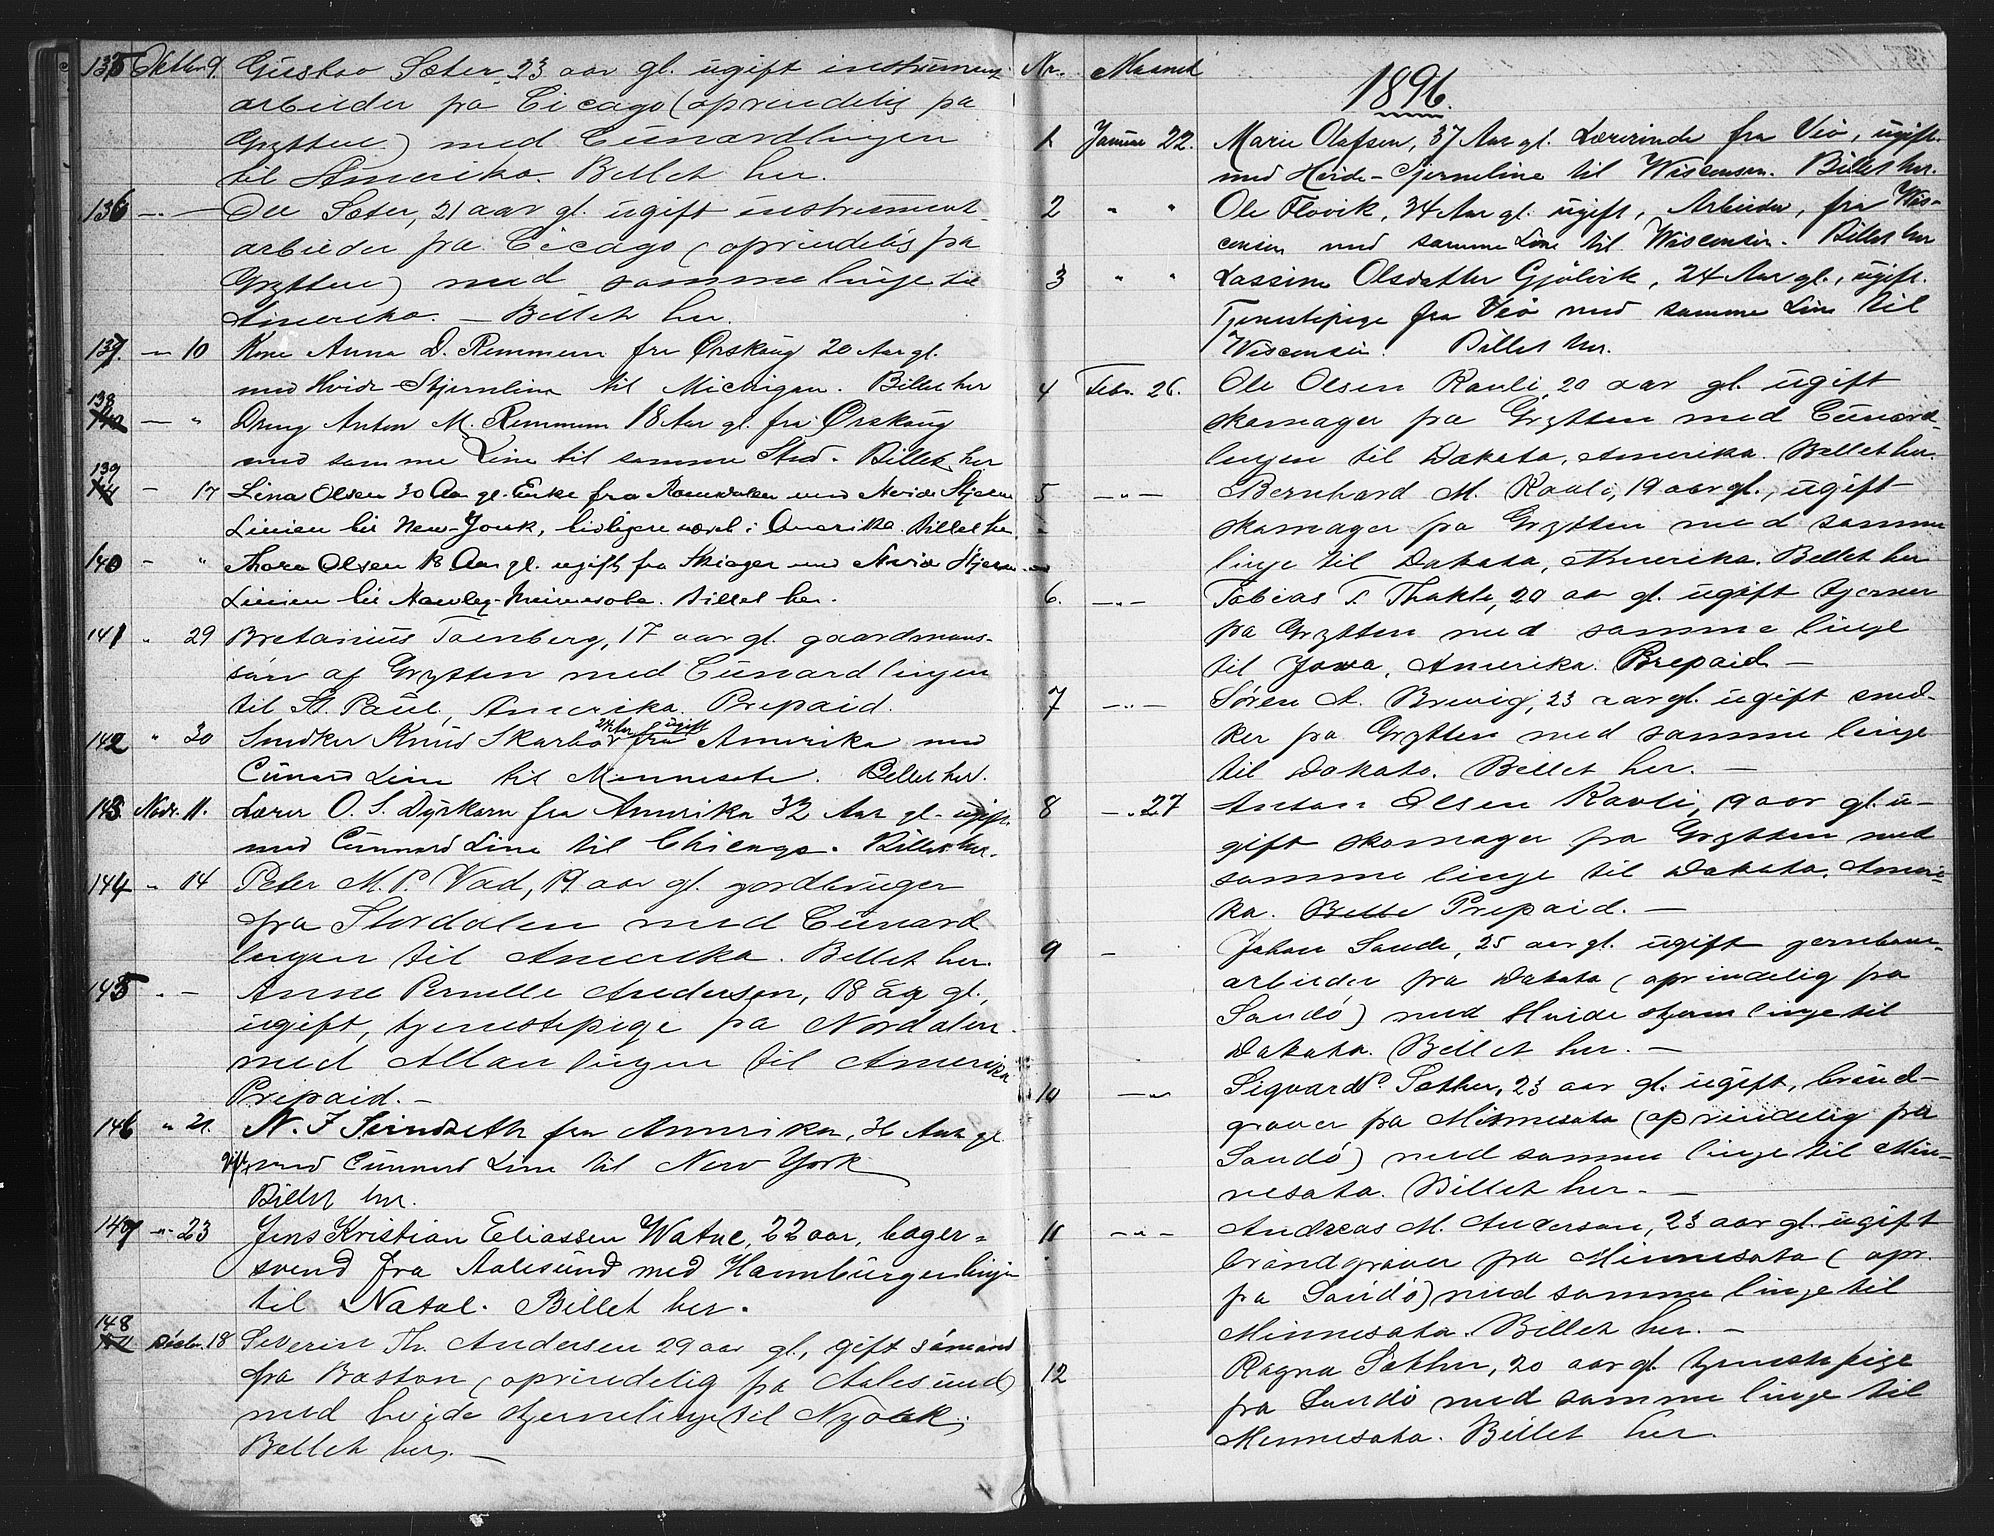 135 Oktbr 9. Gustav Sæter 23 aar gl. ugift instrument
arbeider frå Cicago (oprindelig fra
Grytten) med Cunardlinjen
til Amerika. Billet her.
136 -"- Ole Sæter, 21 aar gl. ugift instrument-
arbeider fra Cicago (oprindelig fra
Grytten) med samme linje til
Amerika. - Billet her.
137 - 10 Kone Anna D. Remmem fra Ørskoug 20 Aar gl.
med Hvide-Stjernlinie til Michigan. Billet her
138 - " Dreng Anton M. Remmem 18 Aar gl. fra Ørskoug
med samme Line til samme Sted. Billet her
139 - 17 Lina Olsen 30 Aar gl. Enke fra Romsdalen med Hvide Stjern
Linien til New-York, tidligere været i Amerika. Billet her.
140 - " Thora Olsen 18 Aar gl. ugift fra Skioger med Hvide Stjern
Linien til Hawley Minnesota. Billet her.
141 " 29 Bretanius Tomberg, 17 aar gl. gaardmans-
søn af Grytten med Cunard linjen
til St. Paul, Amerika. Prepaid.
142 " 30 Smedker Knud Skarbø 24 Aar ugift fra Amerika med
Cunard Line til Minnesota. Billet her.
143 Novbr. 11. Lærer O. S. Dyrkorn fra Amerika 32 Aar gl. ugift.
med Cunnard Line til Chicago. Billet her.
144 " 14 Peter M. P. Vad, 19 aar gl. jordbruger
fra Stordalen med Cunard
linjen til Amerika. Billet her.
145 " - Anne Pernelle Andersen, 18 aar gl.,
ugift, tjenestepige fra Nordalen
med Allan linjen til Amerika
Prepaid. -
146 " 21. N. J. fra Amerika, 36 Aar gl.
gift, med Cunnard Line til New York
Billet her.
147 -"- 23 Jens Kristian Eliassen Watne, 22 aar, bager-
svend fra Aalesund med Hamburgerlinjen
til Natal. Billet her.
148 Decbr. 18 Severin Th. Andersen 29 aar gl, gift sømand
fra Boston (oprindelig fra Aalesund)
med hvide stjernelinje til Nyork.
Billet her. -
Nr. Maaned
1896.
1 Januar 22. Marie Olafsen, 37 Aar gl. Lærerinde fra Veø, ugift.
med Hvide-Stjerneline til Wisconsin. Billet her.
2 " " Ole Flovik, 34 Aar gl. ugift, Arbeider, fra Wis-
consin med samme Line til Wisconsin. Billet her
3 " " Lassine Olsdatter Gjølvik, 24 Aar gl., ugift.
Tjenestepige fra Veø med samme Line til
Wisconsin. Billet her.
4 Febr. 26. Ole Olsen Rauli, 20 aar gl. ugift
skomager fra Grytten med Cunard-
linjen til Dakota, Amerika. Billet her.
5 -"- Bernhard M. Rauli, 19 aar gl., ugift
skomager fra Grytten med samme
linje til Dakota, Amerika. Billet her
6. -"- Tobias T. Thokle, 20 aar gl. ugift tjener
fra Grytten med samme linje
til Jowa, Amerika. Prepaid -
7 -"- Søren A. Brevig, 23 aar gl. ugift smed-
ker fra Grytten med samme linje
til Dakota. Billet her. -
8 -"- 27 Anton Olsen Rauli, 19 aar gl. u-
gift skomager fra Grytten med
samme linje til Dakota, Ameri-
ka. Bille Prepaid. -
9 - Johan Sande, 25 aar gl. ugift jernbane-
arbeider fra Dakota (oprindelig fra
Sandø) med Hvide stjern linje til
Dakota. Billet her. -
10 -"- Sigvard P. Sæther, 23 aar gl. ugift, brønd-
graver fra Minnesota (oprindelig fra
Sandø) med samme linje til Min-
nesota. Billet her. -
11 -"- Andreas M. Anderson, 23 aar gl. ugift
brøndgraver fra Minnesota (opr.
fra Sandø) med samme linje til
Minnesota. Billet her. -
12 Ragna Sæther, 20 aar gl. tjenestepige
fra Sandø med samme linje til
Minnesota. Billet her.